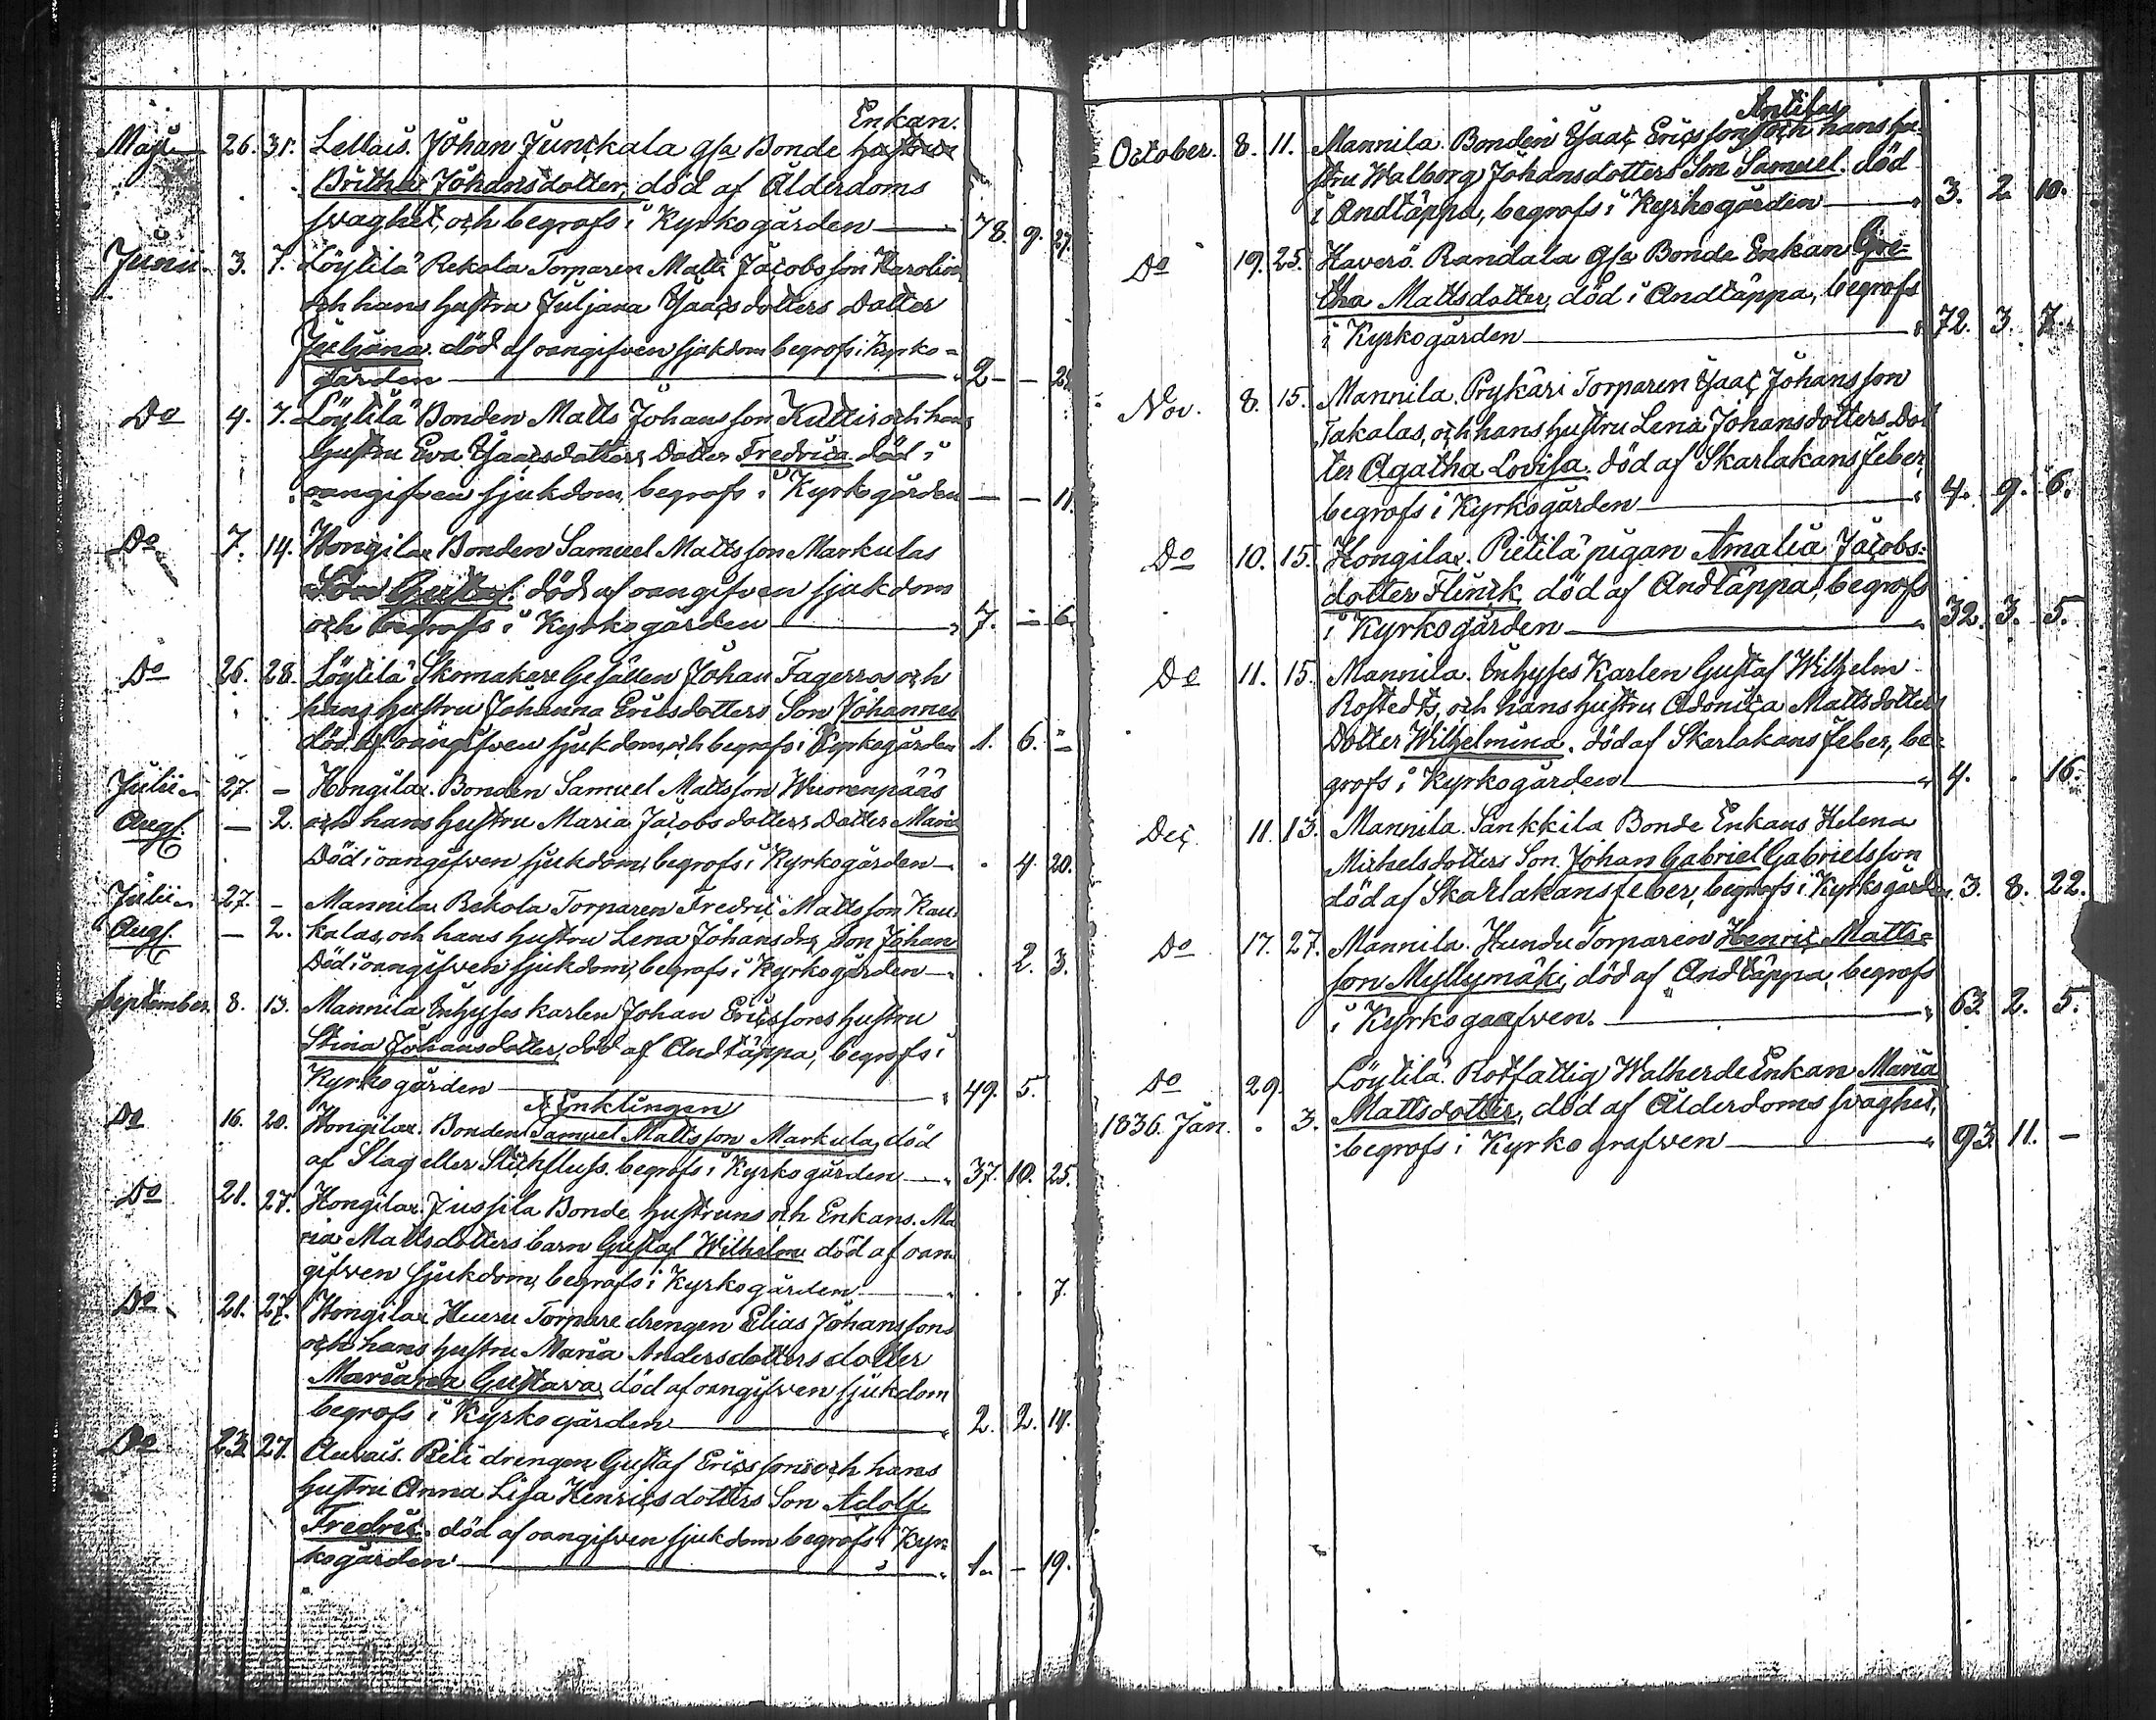 Enkan.
Maji 26. 31. Lellais. Johan Junckala gſa Bonde hustrun
Britha Johansdotter, död af Ålderdoms
svaghet, och begrofs i Kyrkogården 78. 9. 27.
Junii 3. 7. Löytilä Rekola Torparen Matts Jacobsson Karolin
och hans hustru Juljana Isaacsdotters Dotter
Juljana. död af oangifven sjukdom begrofs i Kyrko-
gården 2 — —
Do 4. 7. Löytilä Bonden Matts Johansson Kuttis och hans
hustru Eva Isaacsdotters Dotter Fredrica död i
oangifven sjukdom, begrofs i Kyrkogården — — 11.
Do 7. 14. Hongilax Bonden Samuel Mattsson Markulas
Son Gustaf. död af oangifven sjukdom
och begrofs i Kyrkogården 7. — 6.
Do 26. 28. Löytilä Skomakare Gesällen Johan Fagerros och
hans hustru Johanna Ericsdotters Son Johannes
död af oangifven sjukdom, och begrofs i Kyrkogården 1. 6. —
Julii 27. — Hongilax. Bonden Samuel Mattsson Wuorenpääs
Augs. — 2. och hans hustru Maria Jacobsdotters Dotter Maria
Död i oangifven sjukdom, begrofs i Kyrkogården . 4. 20.
Julii 27. — Mannila Rekola Torparen Fredric Mattsson Kau
Augs. — 2. kalas, och hans hustru Lena Johansdrs Son Johan
Död i oangifven sjukdom, begrofs i Kyrkogården . 2. 3.
September 8. 13. Mannila Inhyses karlen Johan Ericssons hustru
Stina Johansdotter, död af Andtäppa, begrofs i
Kyrkogården 49. 5.
Enklingen
Do 16. 20. Hongilax. Bonden Samuel Mattsson Markula, död
af Slag eller Stickfluss. begrofs i Kyrkogården 37. 10. 25.
Do 21. 27. Hongilax. Jussila Bonde hustruns och Enkans. Ma
ria Mattsdotters barn Gustaf Wilhelm död af oan
gifven sjukdom, begrofs i Kyrkogården . . 7.
Do 21. 27. Hongilax Huuru Torpare drengen Elias Johanssons
och hans hustru Maria Andersdotters dotter
Mariana Gustava, död af oangifven sjukdom
begrofs i Kyrkogården 2. 2. 14.
Do 23. 27. Auvais. Riti drengen Gustaf Ericssons och hans
hustru Anna Lisa Henricsdotters Son Adolf
Fredric. död af oangifven sjukdom begrofs i Kyr-
kogården 1. — 19.
Antilas
October. 8. 11. Mannila. Bonden Isaac Ericsson och hans hu-
stru Walborg Johansdotters Son Samuel. död
i Andtäppa, begrofs i Kyrkogården 3. 2 10.
Do 19. 25. Haverö. Randala gſa Bonde Enkan Gre-
tha Mattsdotter, död i Andtäppa, begrofs
i Kyrkogården 72. 3. 7.
Nov. 8. 15. Mannila. Prykäri Torparen Isaac Johansson
Takalas, och hans hustru Lena Johansdotters Dot
ter Agatha Lovisa. död af Skarlakansfeber,
begrofs i Kyrkogården 4. 9. 6.
Do 10. 15. Hongilax. Pietilä pigan Amalia Jacobs-
dotter Flinck, död af Andtäppa, begrofs
i Kyrkogården 32. 3. 5.
Do 11. 15. Mannila. Inhyses Karlen Gustaf Wilhelm
Rostedts, och hans hustru Adonica Mattsdotters
Dotter Wilhelmina. död af Skarlakans feber, be-
grofs i Kyrkogården 4. . 16.
Dec. 11. 13. Mannila. Sankkila Bonde Enkans Helena
Michelsdotters Son. Johan Gabriel Gabrielsson
död af Skarlakansfeber, begrofs i Kyrkogården 3. 8. 22.
Do 17. 27. Mannila. Hundu Torparen Henric Matts-
son Myllymäki, död af Andtäppa, begrofs
i Kyrkogaafven. 63. 2. 5.
Do 29. Löytilä. Rotfattig Walherde Enkan Maria
1836. Jan. . 3. Mattsdotter, död af Ålderdoms svaghet,
begrofs i Kyrkografven 93. 11. —